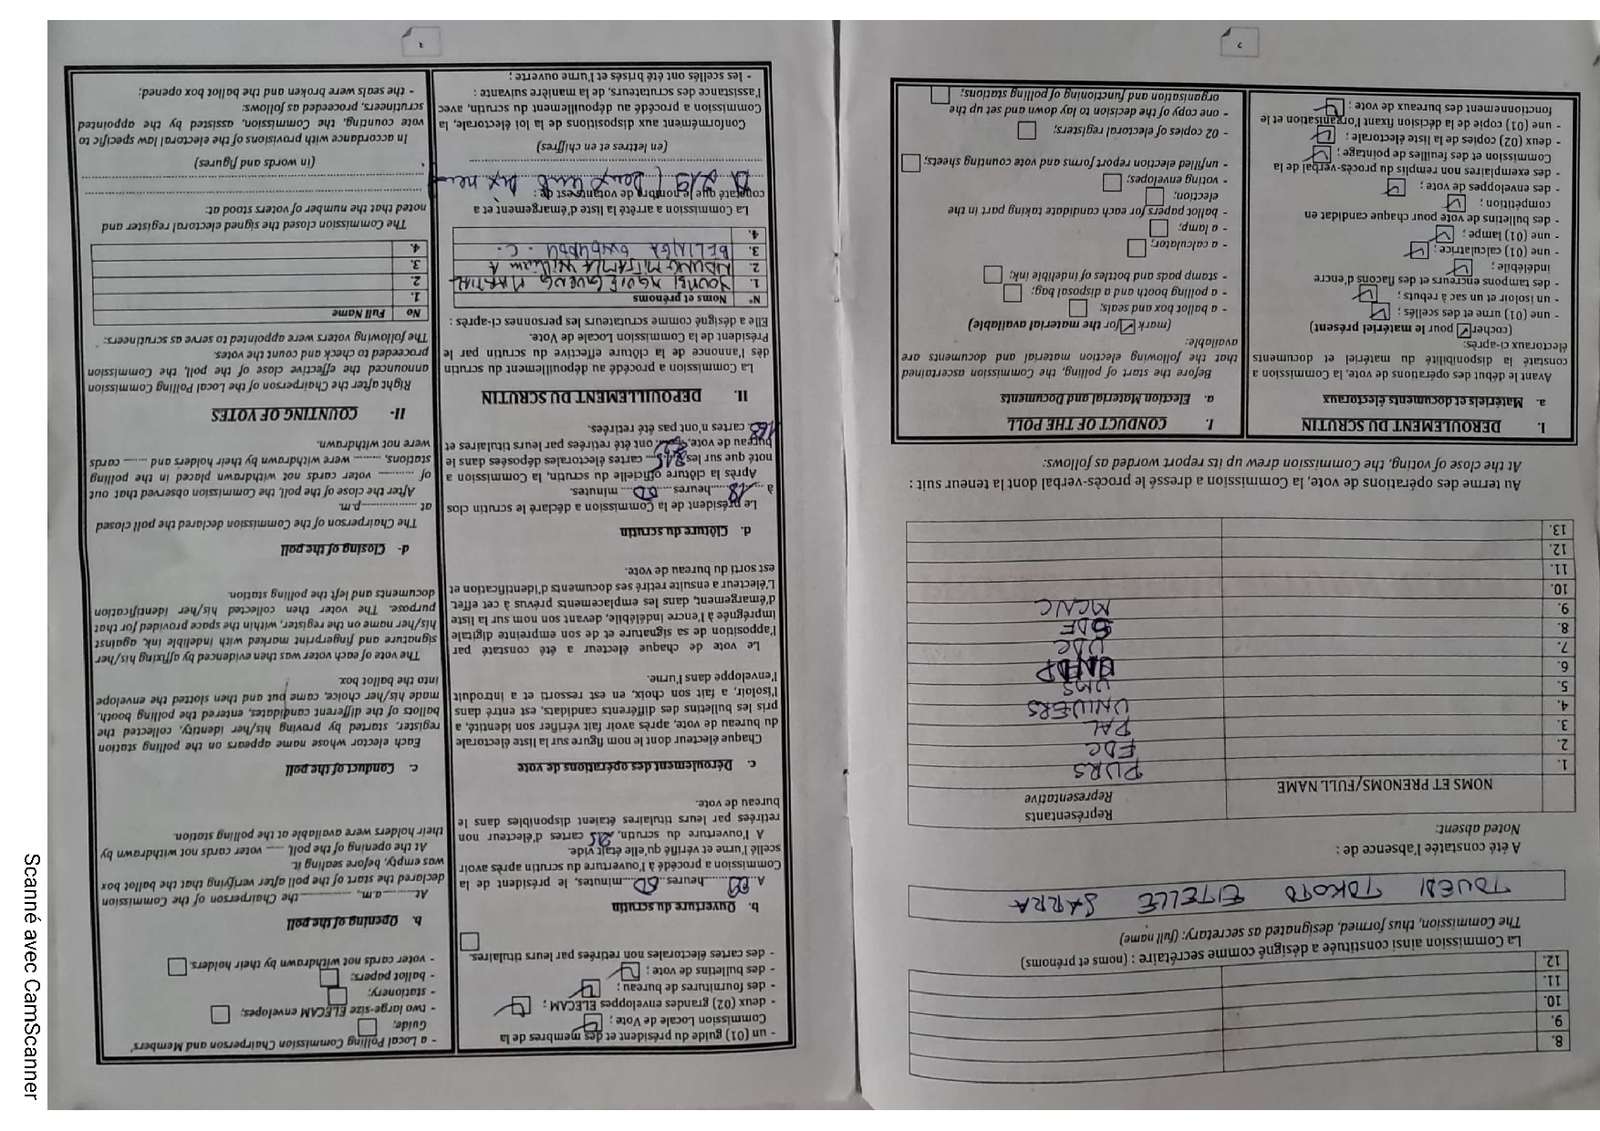 8.
9.
10.
11.
12.
La Commission ainsi constituée a désigné comme secrétaire : (noms et prénoms)
The Commission, thus formed, designated as secretary: (full name)
TOUEDI TOKOTO EITELLE SARRA
A été constatée l'absence de :
Noted absent:
NOMS ET PRENOMS/FULL NAME
Représentants
Representative
1. PURS
2. EDC
3. PAL
4. UNIVERS
5. UMS
6.
7. UDC
8. SDF
9. MCNC
10.
11.
12.
13.
Au terme des opérations de vote, la Commission a dressé le procès-verbal dont la teneur suit :
At the close of voting, the Commission drew up its report worded as follows:
I. DEROULEMENT DU SCRUTIN
a. Matériels et documents électoraux
Avant le début des opérations de vote, la Commission a
constaté la disponibilité du matériel et documents
électoraux ci-après:
(cocher pour le matériel présent)
- une (01) urne et des scellés ;
- un isoloir et un sac à rebuts ;
- des tampons encreurs et des flacons d'encre
indélébile ;
- une (01) calculatrice ;
- une (01) lampe ;
- des bulletins de vote pour chaque candidat en
compétition ;
- des enveloppes de vote ;
- des exemplaires non remplis du procès-verbal de la
Commission et des feuilles de pointage ;
- deux (02) copies de la liste électorale ;
- une (01) copie de la décision fixant l'organisation et le
fonctionnement des bureaux de vote ;
I. CONDUCT OF THE POLL
a. Election Material and Documents
Before the start of polling, the Commission ascertained
that the following election material and documents are
available:
(mark for the material available)
- a ballot box and seals;
- a polling booth and a disposal bag;
- stamp pads and bottles of indelible ink;
- a calculator;
- a lamp;
- ballot papers for each candidate taking part in the
election;
- voting envelopes;
- unfilled election report forms and vote counting sheets;
- 02 copies of electoral registers;
- one copy of the decision to lay down and set up the
organisation and functioning of polling stations;
2
- un (01) guide du président et des membres de la
Commission Locale de Vote ;
- deux (02) grandes enveloppes ELECAM ;
- des fournitures de bureau ;
- des bulletins de vote ;
- des cartes électorales non retirées par leurs titulaires.
b. Ouverture du scrutin
A 08 heures 00 minutes, le président de la
Commission a procédé à l'ouverture du scrutin après avoir
scellé l'urne et vérifié qu'elle était vide.
A l'ouverture du scrutin, 215 cartes d'électeur non
retirées par leurs titulaires étaient disponibles dans le
bureau de vote.
c. Déroulement des opérations de vote
Chaque électeur dont le nom figure sur la liste électorale
du bureau de vote, après avoir fait vérifier son identité, a
pris les bulletins des différents candidats, est entré dans
l'isoloir, a fait son choix, en est ressorti et a introduit
l'enveloppe dans l'urne.
Le vote de chaque électeur a été constaté par
l'apposition de sa signature et de son empreinte digitale
imprégnée à l'encre indélébile, devant son nom sur la liste
d'émargement, dans les emplacements prévus à cet effet.
L'électeur a ensuite retiré ses documents d'identification et
est sorti du bureau de vote.
d. Clôture du scrutin
Le président de la Commission a déclaré le scrutin clos
à 18 heures 00 minutes.
Après la clôture officielle du scrutin, la Commission a
noté que sur les 215 cartes électorales déposées dans le
bureau de vote, ont été retirées par leurs titulaires et
cartes n'ont pas été retirées.
II. DEPOUILLEMENT DU SCRUTIN
La Commission a procédé au dépouillement du scrutin
dès l'annonce de la clôture effective du scrutin par le
Président de la Commission Locale de Vote.
Elle a désigné comme scrutateurs les personnes ci-après :
N° Noms et prénoms
1. MARTIAL
2. William A
3. BELINGA C.
4.
La Commission a arrêté la liste d'émargement et a
constaté que le nombre de votants est de :
219 ( Deux cent dix neuf
(en lettres et en chiffres)
Conformément aux dispositions de la loi électorale, la
Commission a procédé au dépouillement du scrutin, avec
l'assistance des scrutateurs, de la manière suivante :
- les scellés ont été brisés et l'urne ouverte ;
- a Local Polling Commission Chairperson and Members'
Guide;
- two large-size ELECAM envelopes;
- stationery;
- ballot papers;
- voter cards not withdrawn by their holders.
b. Opening of the poll
At a.m, the Chairperson of the Commission
declared the start of the poll after verifying that the ballot box
was empty, before sealing it.
At the opening of the poll, voter cards not withdrawn by
their holders were available at the polling station.
c. Conduct of the poll
Each elector whose name appears on the polling station
register, started by proving his/her identity, collected the
ballots of the different candidates, entered the polling booth,
made his/her choice, came out and then slotted the envelope
into the ballot box.
The vote of each voter was then evidenced by affixing his/her
signature and fingerprint marked with indelible ink, against
his/her name on the register, within the space provided for that
purpose. The voter then collected his/her identification
documents and left the polling station.
d- Closing of the poll
The Chairperson of the Commission declared the poll closed
at p.m.
After the close of the poll, the Commission observed that out
of voter cards not withdrawn placed in the polling
stations, were withdrawn by their holders and cards
were not withdrawn.
II- COUNTING OF VOTES
Right after the Chairperson of the Local Polling Commission
announced the effective close of the poll, the Commission
proceeded to check and count the votes.
The following voters were appointed to serve as scrutineers:
No Full Name
1.
2
3
4.
The Commission closed the signed electoral register and
noted that the number of voters stood at:
(in words and figures)
In accordance with provisions of the electoral law specific to
vote counting, the Commission, assisted by the appointed
scrutineers, proceeded as follows:
- the seals were broken and the ballot box opened;
3
Scanné avec CamScanner